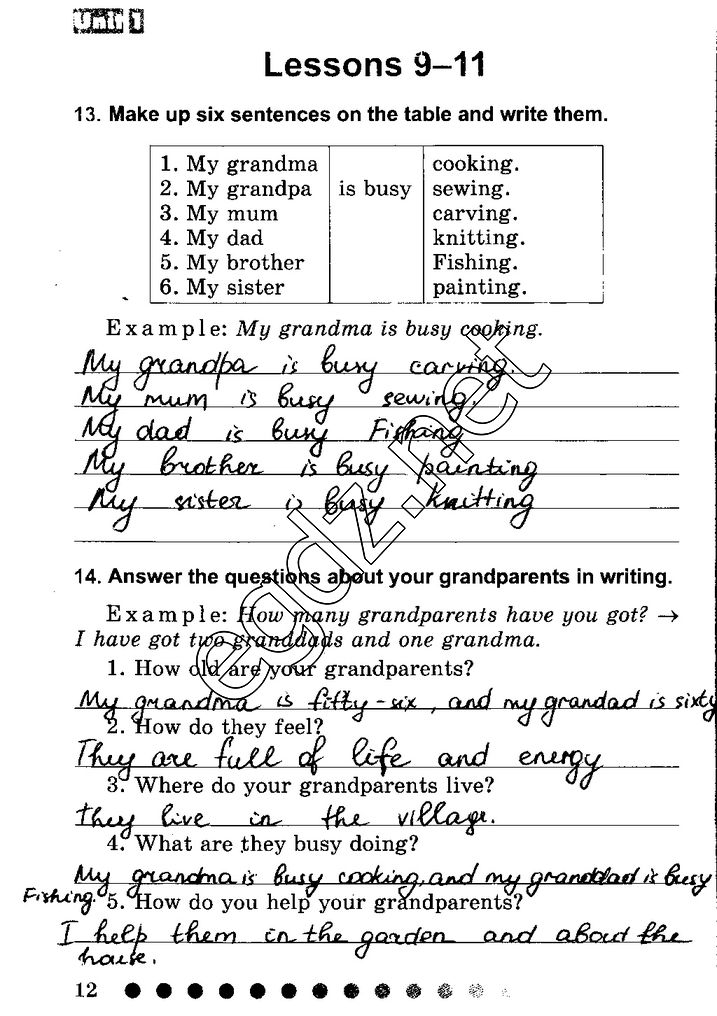 Unit 1
Lessons 9–11
13. Make up six sentences on the table and write them.
1. My grandma is busy cooking.
2. My grandpa sewing.
3. My mum carving.
4. My dad knitting.
5. My brother Fishing.
6. My sister painting.
Example: My grandma is busy cooking.
My grandpa is busy carving.
My mum is busy sewing.
My dad is busy Fishing
My brother is busy painting
My sister is busy knitting
14. Answer the questions about your grandparents in writing.
Example: How many grandparents have you got? →
I have got two granddads and one grandma.
1. How old are your grandparents?
My grandma is fifty-six, and my grandad is sixty
2. How do they feel?
They are full of life and energy
3. Where do your grandparents live?
they live in the village.
4. What are they busy doing?
My grandma is busy cooking, and my granddad is busy
Fishing. 5. How do you help your grandparents?
I help them in the garden and about the
house.
12
egdz.net